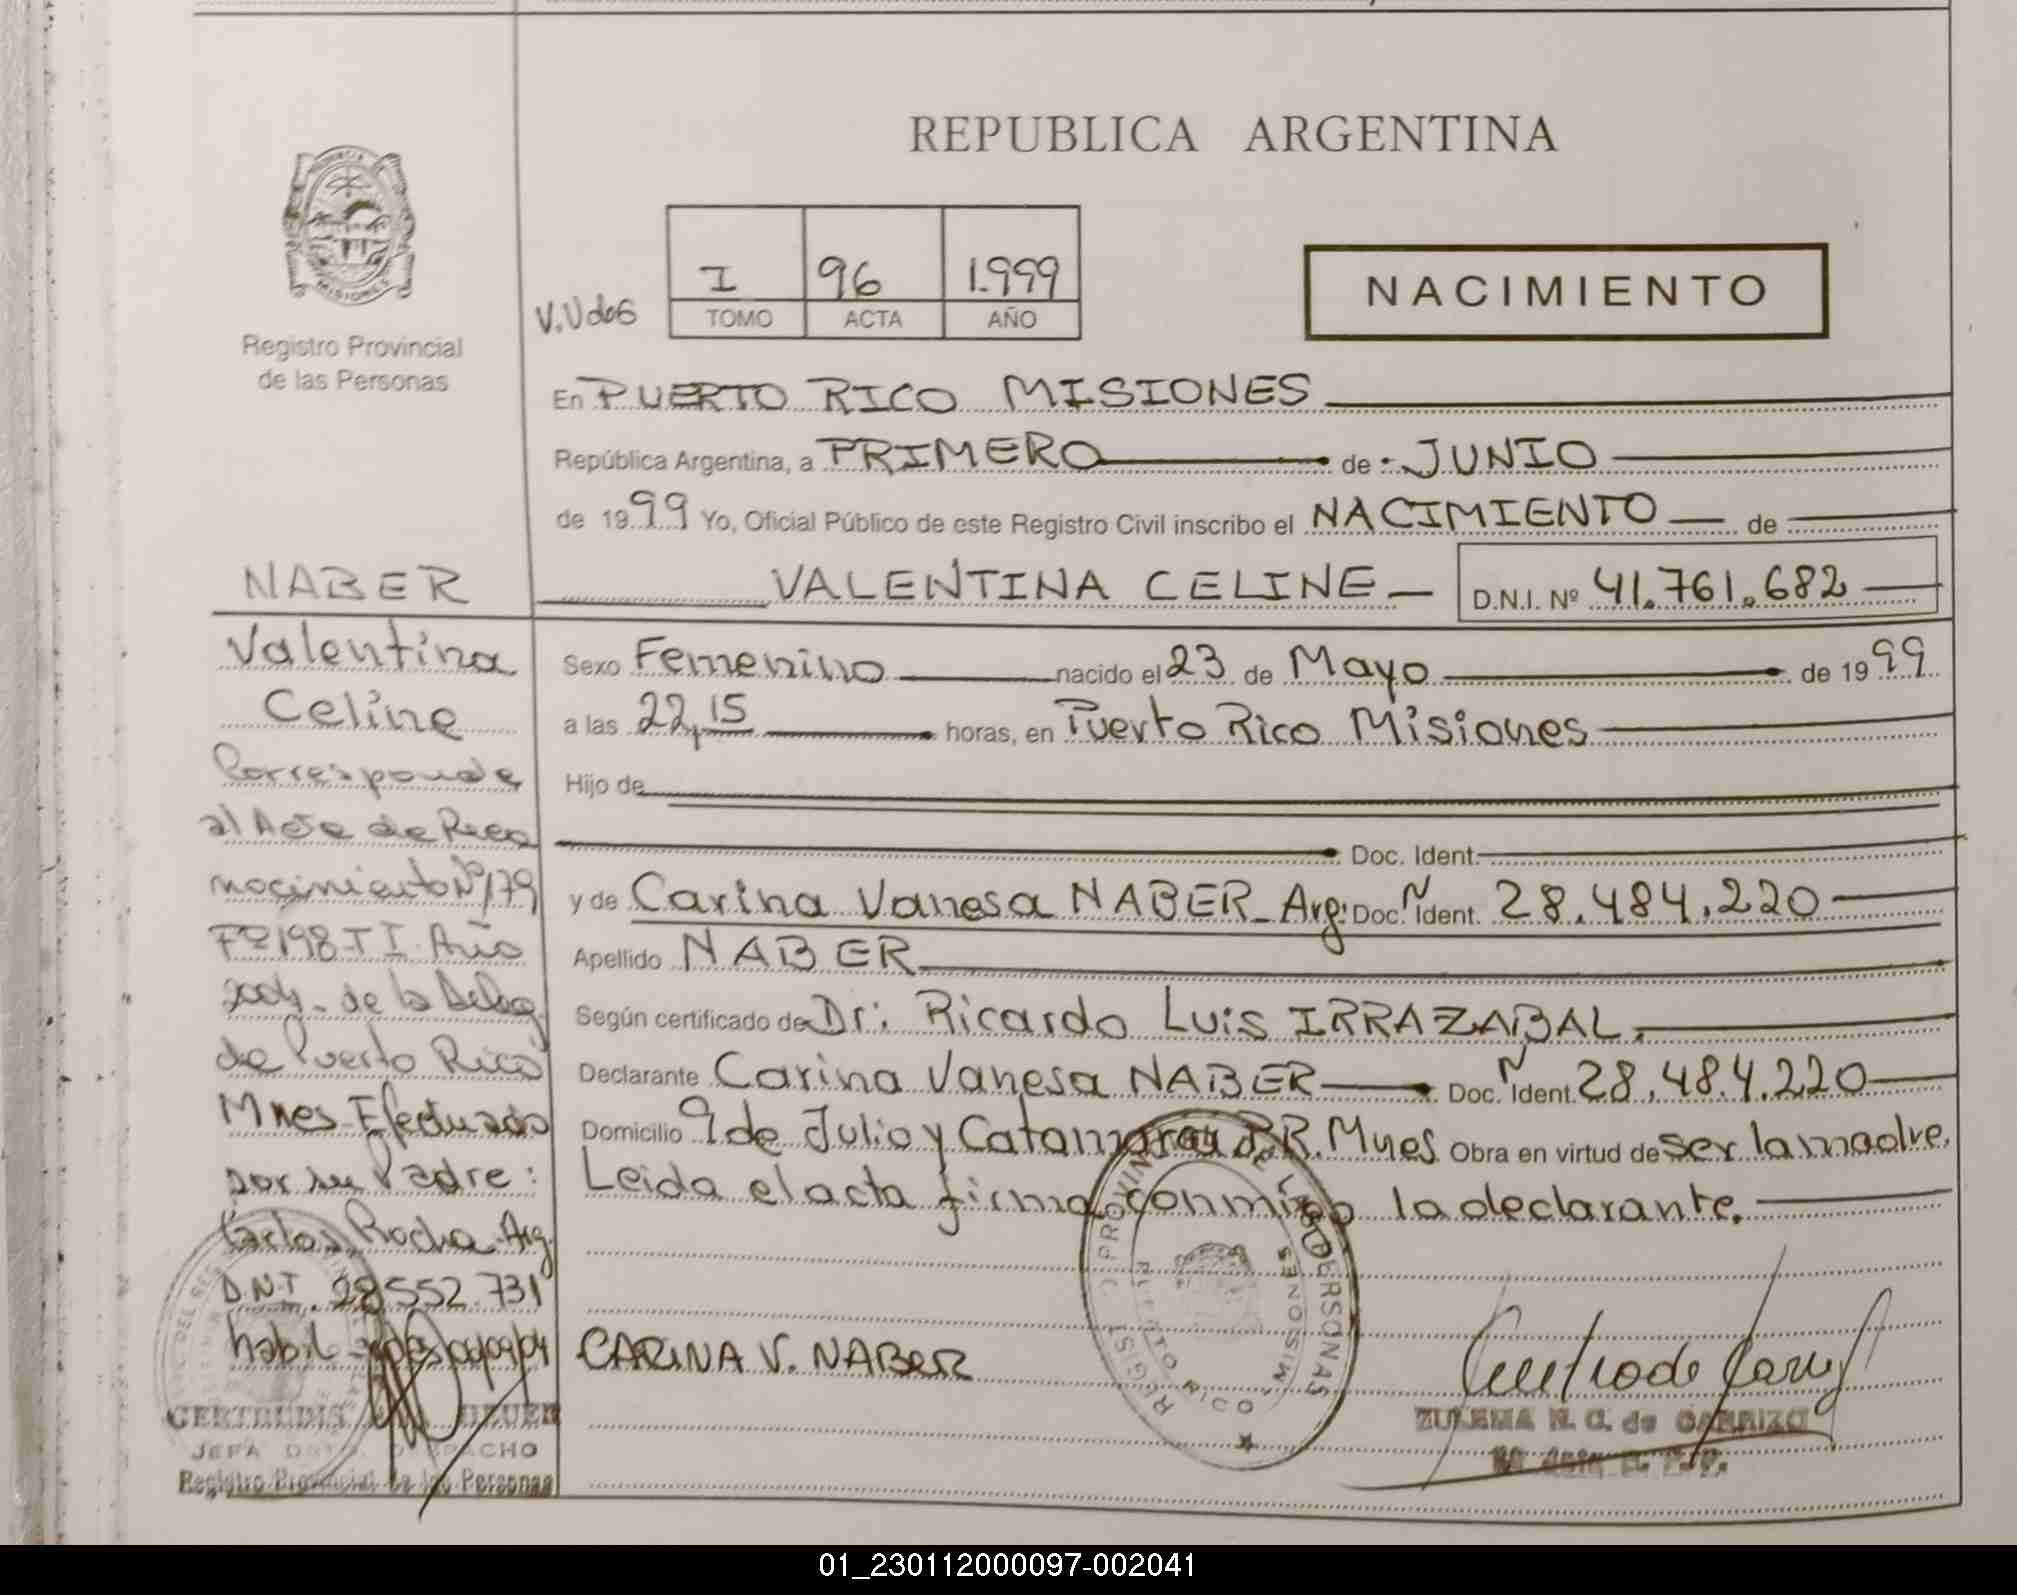 REPUBLICA ARGENTINA
PROVINCIA
MISIONES
Registro Provincial
de las Personas
V.Vdos
I 96 1.999
TOMO ACTA AÑO
NACIMIENTO
En PUERTO RICO MISIONES
República Argentina, a PRIMERO de JUNIO
de 1999 Yo, Oficial Público de este Registro Civil inscribo el NACIMIENTO de
NABER
VALENTINA CELINE D.N.I. Nº 41.761.682
Valentina
Celine
Corresponde
al Acta de Reco
nocimiento Nº 179
Fº 198 T I Año
2004 - de la Deleg
de Puerto Rico
Mnes Efectuado
por su Padre:
Carlos Rocha Arg.
D.N.I. 28552.731
habil
GERTRUDIS BEUER
JEFA DPTO. DESPACHO
Registro Provincial de las Personas
Sexo Femenino nacido el 23 de Mayo de 1999
a las 22,15 horas, en Puerto Rico Misiones
Hijo de
Doc. Ident.
y de Carina Vanesa NABER Arg: Doc. N Ident. 28.484.220
Apellido NABER
Según certificado de Dr: Ricardo Luis IRRAZABAL.
Declarante Carina Vanesa NABER Doc. N Ident. 28.484.220
Domicilio 9 de Julio y Catamarca P.R. Mnes Obra en virtud de ser la madre.
Leida el acta firma conmigo la declarante.
CARINA V. NABER
REGIST. PROVIN DE LAS PERSONAS
PUERTO RICO MISIONES
ZULEMA N. C. de CARRIZO
01_230112000097-002041